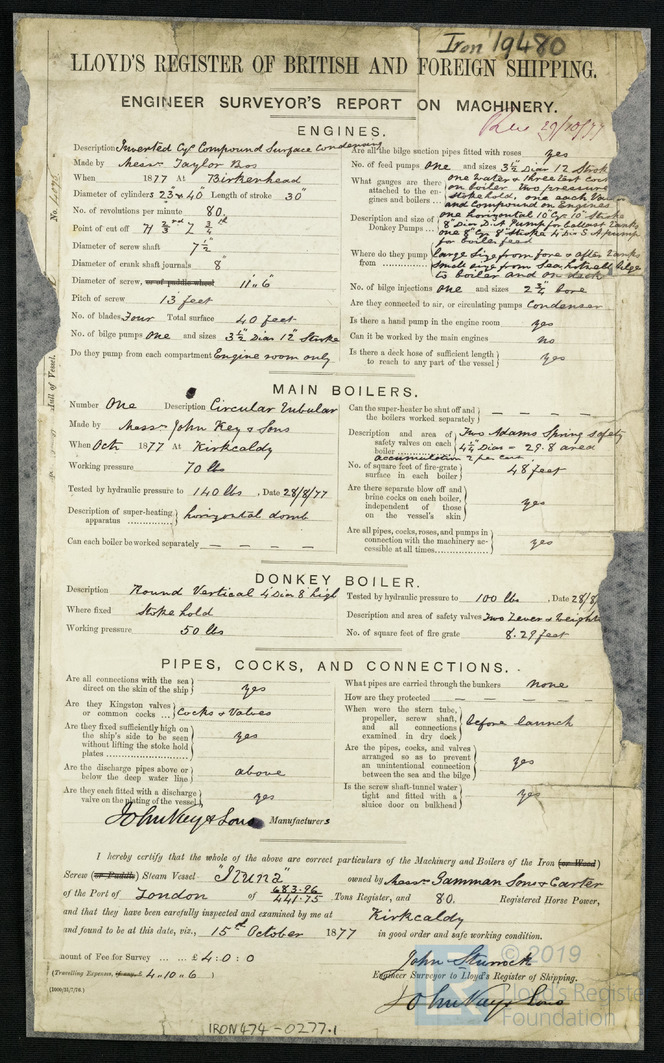 Iron 19480
LLOYD'S REGISTER OF BRITISH AND FOREIGN SHIPPING.
ENGINEER SURVEYOR'S REPORT ON MACHINERY.
Rec 29/10/77
ENGINES.
Description Inverted Cyl Compound Surface Condensing
Made by Messrs Taylor Bros
When 1877 At Birkenhead
Diameter of cylinders 23" & 40" Length of stroke 30"
No. of revolutions per minute 80.
Point of cut off
Diameter of screw shaft 7 1/2"
Diameter of crank shaft journals 8"
Diameter of screw, or of puddle wheel 11' 6"
Pitch of screw 13 feet
No. of blades Four Total surface 40 feet
No. of bilge pumps One and sizes 3 1/2" Diar 12" Stroke
Do they pump from each compartment Engine room only
Are all the bilge suction pipes fitted with roses yes
No. of feed pumps One and sizes 3 1/2 Diar 12 Stroke
What gauges are there attached to the engines and boilers ... one water & three test cocks on boiler two pressure stokehold, one each Vac and Compound on Engines
Description and size of Donkey Pumps ... one horizontal 10" Cyl 10" Stroke 8" Dia D.A Pump for ballast tanks one 8" Cyl 8" Stroke 4 Dia S A pump for boiler feed
Where do they pump from large size from fore & after tanks small size from Sea, hotwell, bilge to boiler and on deck
No. of bilge injections One and sizes 2 3/4" bore
Are they connected to air, or circulating pumps Condenser
Is there a hand pump in the engine room yes
Can it be worked by the main engines no
Is there a deck hose of sufficient length to reach to any part of the vessel yes
Hull of Vessel.
MAIN BOILERS.
Number One Description Circular Tubular
Made by Messrs John Key & Sons
When Octr 1877 At Kirkcaldy
Working pressure 70 lbs
Tested by hydraulic pressure to 140 lbs , Date 28/8/77
Description of super-heating apparatus horizontal domb
Can each boiler be worked separately — — — —
Can the super-heater be shut off and the boilers worked separately — — — —
Description and area of safety valves on each boiler Two Adams Spring safety 4 1/4 Dias = 29.8 area
accumulation 2 per cent
No. of square feet of fire-grate surface in each boiler 48 feet
Are there separate blow off and brine cocks on each boiler, independent of those on the vessel's skin yes
Are all pipes, cocks, roses, and pumps in connection with the machinery accessible at all times yes
DONKEY BOILER.
Description Round Vertical 4' Dia 8 high
Where fixed Stoke hold
Working pressure 50 lbs
Tested by hydraulic pressure to 100 lbs , Date 28/8/
Description and area of safety valves Two Lever & Weight
No. of square feet of fire grate 8.29 feet
PIPES, COCKS, AND CONNECTIONS.
Are all connections with the sea direct on the skin of the ship yes
Are they Kingston valves or common cocks ... Cocks & Valves
Are they fixed sufficiently high on the ship's side to be seen without lifting the stoke hold plates yes
Are the discharge pipes above or below the deep water line above
Are they each fitted with a discharge valve on the plating of the vessel yes
What pipes are carried through the bunkers none
How are they protected — — — —
When were the stern tube, propeller, screw shaft, and all connections examined in dry dock before launch
Are the pipes, cocks, and valves arranged so as to prevent an unintentional connection between the sea and the bilge yes
Is the screw shaft-tunnel water tight and fitted with a sluice door on bulkhead yes
John Key & Sons Manufacturers
I hereby certify that the whole of the above are correct particulars of the Machinery and Boilers of the Iron (or Wood)
Screw (or Paddle) Steam Vessel owned by Messrs Gamman Sons & Carter
of the Port of London of 683.96 441.75 Tons Register, and 80. Registered Horse Power,
and that they have been carefully inspected and examined by me at Kirkcaldy
and found to be at this date, viz., 15th October 1877 in good order and safe working condition.
mount of Fee for Survey ... ... £ 4 : 0 : 0
(Travelling Expenses, if any, £ 4 " 10 " 6 )
John Sturrock
Engineer Surveyor to Lloyd's Register of Shipping.
John Key & Sons
© 2019
Lloyd's Register
Foundation
IRON474-0277.1